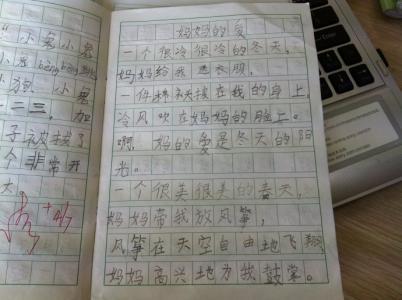 妈妈的爱
一个很冷很冷的冬天，
妈妈给我送衣服，
一件件衣披在我的身上，
冷风吹在妈妈的脸上。
啊，妈的爱是冬天的阳
光。
一个很美很美的春天，
妈妈带我放风筝，
风筝在天空自由地飞翔
妈妈高兴地为我鼓掌。
"小老小老
小狗 小老
二二三，加
子被拔了
个非常开